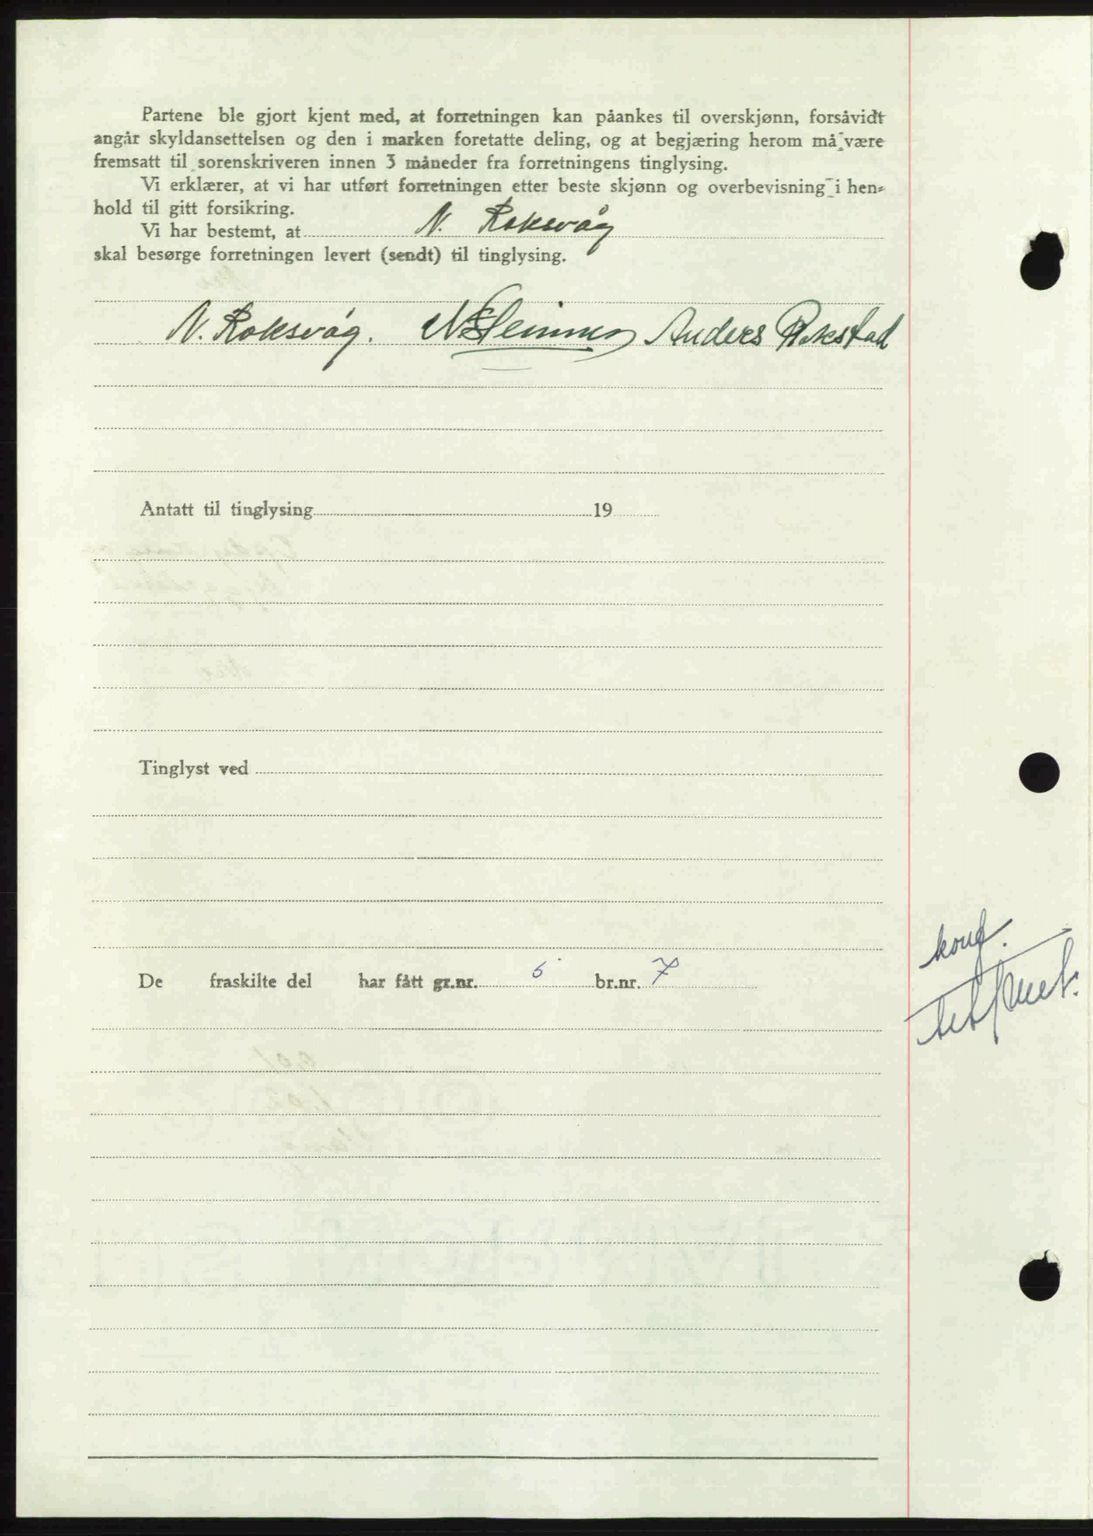 Partene ble gjort kjent med, at forretningen kan påankes til overskjønn, forsåvidt
angår skyldansettelsen og den i marken foretatte deling, og at begjæring herom må være
fremsatt til sorenskriveren innen 3 måneder fra forretningens tinglysing.
Vi erklærer, at vi har utført forretningen etter beste skjønn og overbevisning i hen-
hold til gitt forsikring.
Vi har bestemt, at N. Roksvåg
skal besørge forretningen levert (sendt) til tinglysing.
N. Roksvåg. Anders Rokstad
Antatt til tinglysing 19
Tinglyst ved
De fraskilte del har fått gr.nr. 5 br.nr. 7
konf.